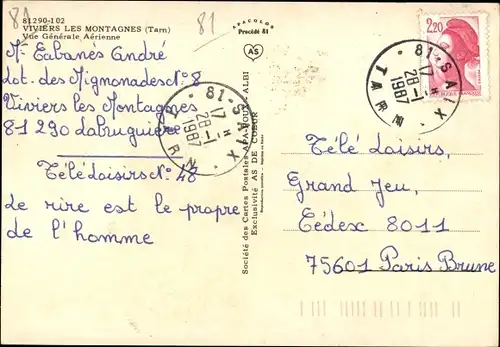 81
81
81290-102
VIVIERS LES MONTAGNES (Tarn)
Vue Générale Aérienne
APACOLOR
Procédé 81
AS
Mr Cabanés André
lot. des Mignonades N° 8
Viviers les Montagnes
81290 Labruguière
Télé Loisirs N° 48
Le rire est le propre
de l'homme
81-SAIX
17 H
28-1
1987
TARN
Société des Cartes Postales APA-POUX - ALBI
Exclusivité AS DE COEUR
2,20
81-SAIX
17 H
28-1
1987
TARN
Télé Loisirs,
Grand Jeu,
Cédex 8011
75601 Paris Brune